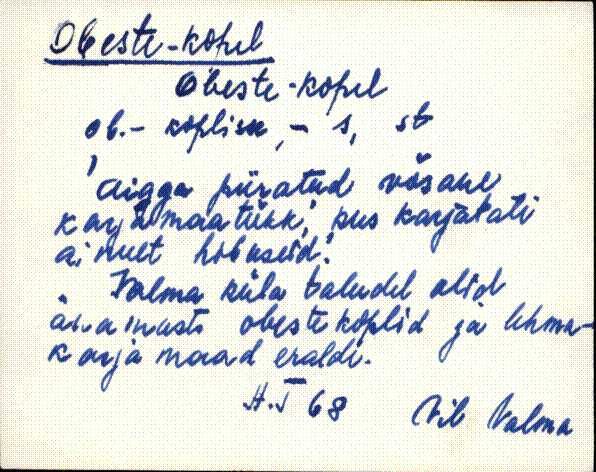 Obeste-kopel
Obeste-kopel
ob.- koplisse, - s, st
'aigga piiratud võsane
karjamaatükk, kus karjatati
ainult hobuseid.'
Valma küla taludel olid
enamasti obestekoplid ja lehma-
karjamaad eraldi.
H. T 68 Vil Valma